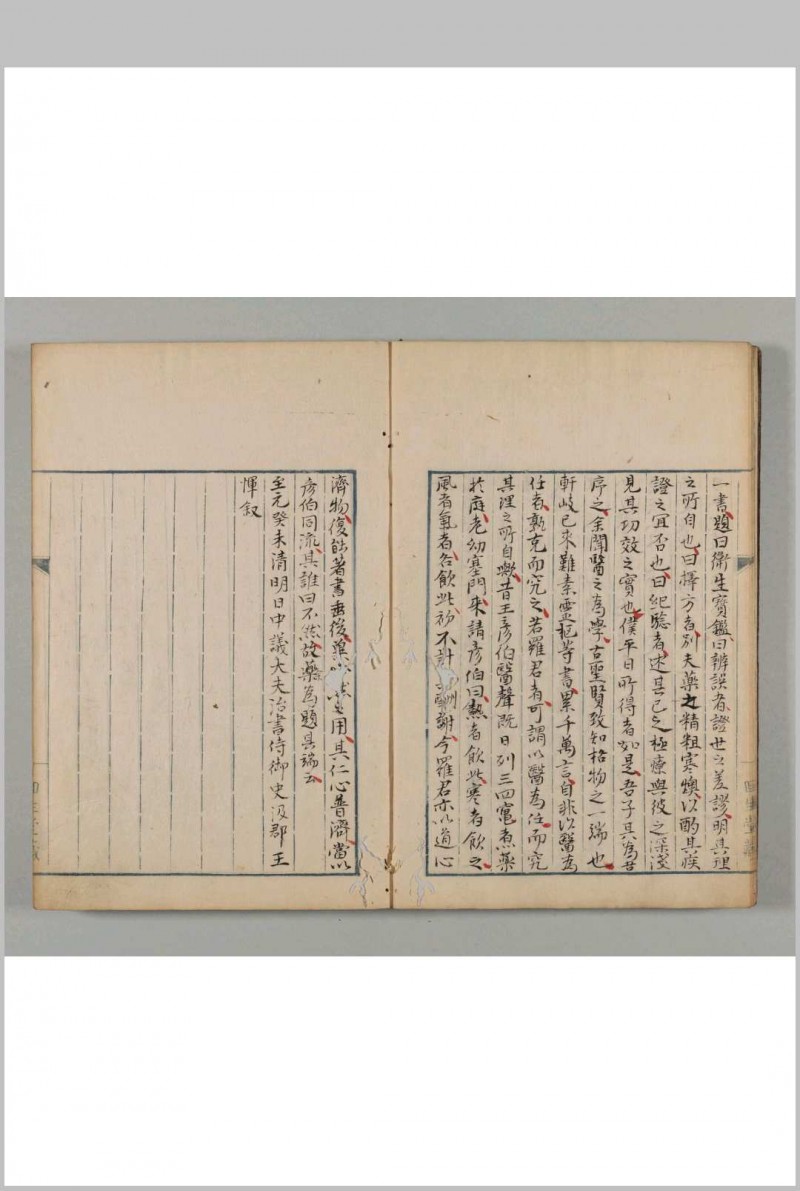 一書題曰衛生寶鑑曰辨誤者證世之差謬明其理
之所自也曰擇方者別夫藥之精粗寒燠以酌其疾
證之宜否也曰紀驗者述其已之極療與彼之深淺
見其功效之實也僕平日所得者如是吾子其為我
序之余聞醫之為學古聖賢致知格物之一端也
軒岐已來難素靈樞等書累千萬言自非以醫為
任者孰克而究之若羅君者可謂以醫為任而究
其理之所自歟昔王彥伯醫聲既日列三四竈煮藥
於庭老幼塞門來請彥伯曰熱者飲此寒者飲之
風者氣者各飲此初不計酬謝今羅君亦以道心
濟物復能著書垂後藥以用其仁心普濟當以
彥伯同流其誰曰不然故樂為題其端云
至元癸未清明日中議大夫治書侍御史汲郡王
惲叙